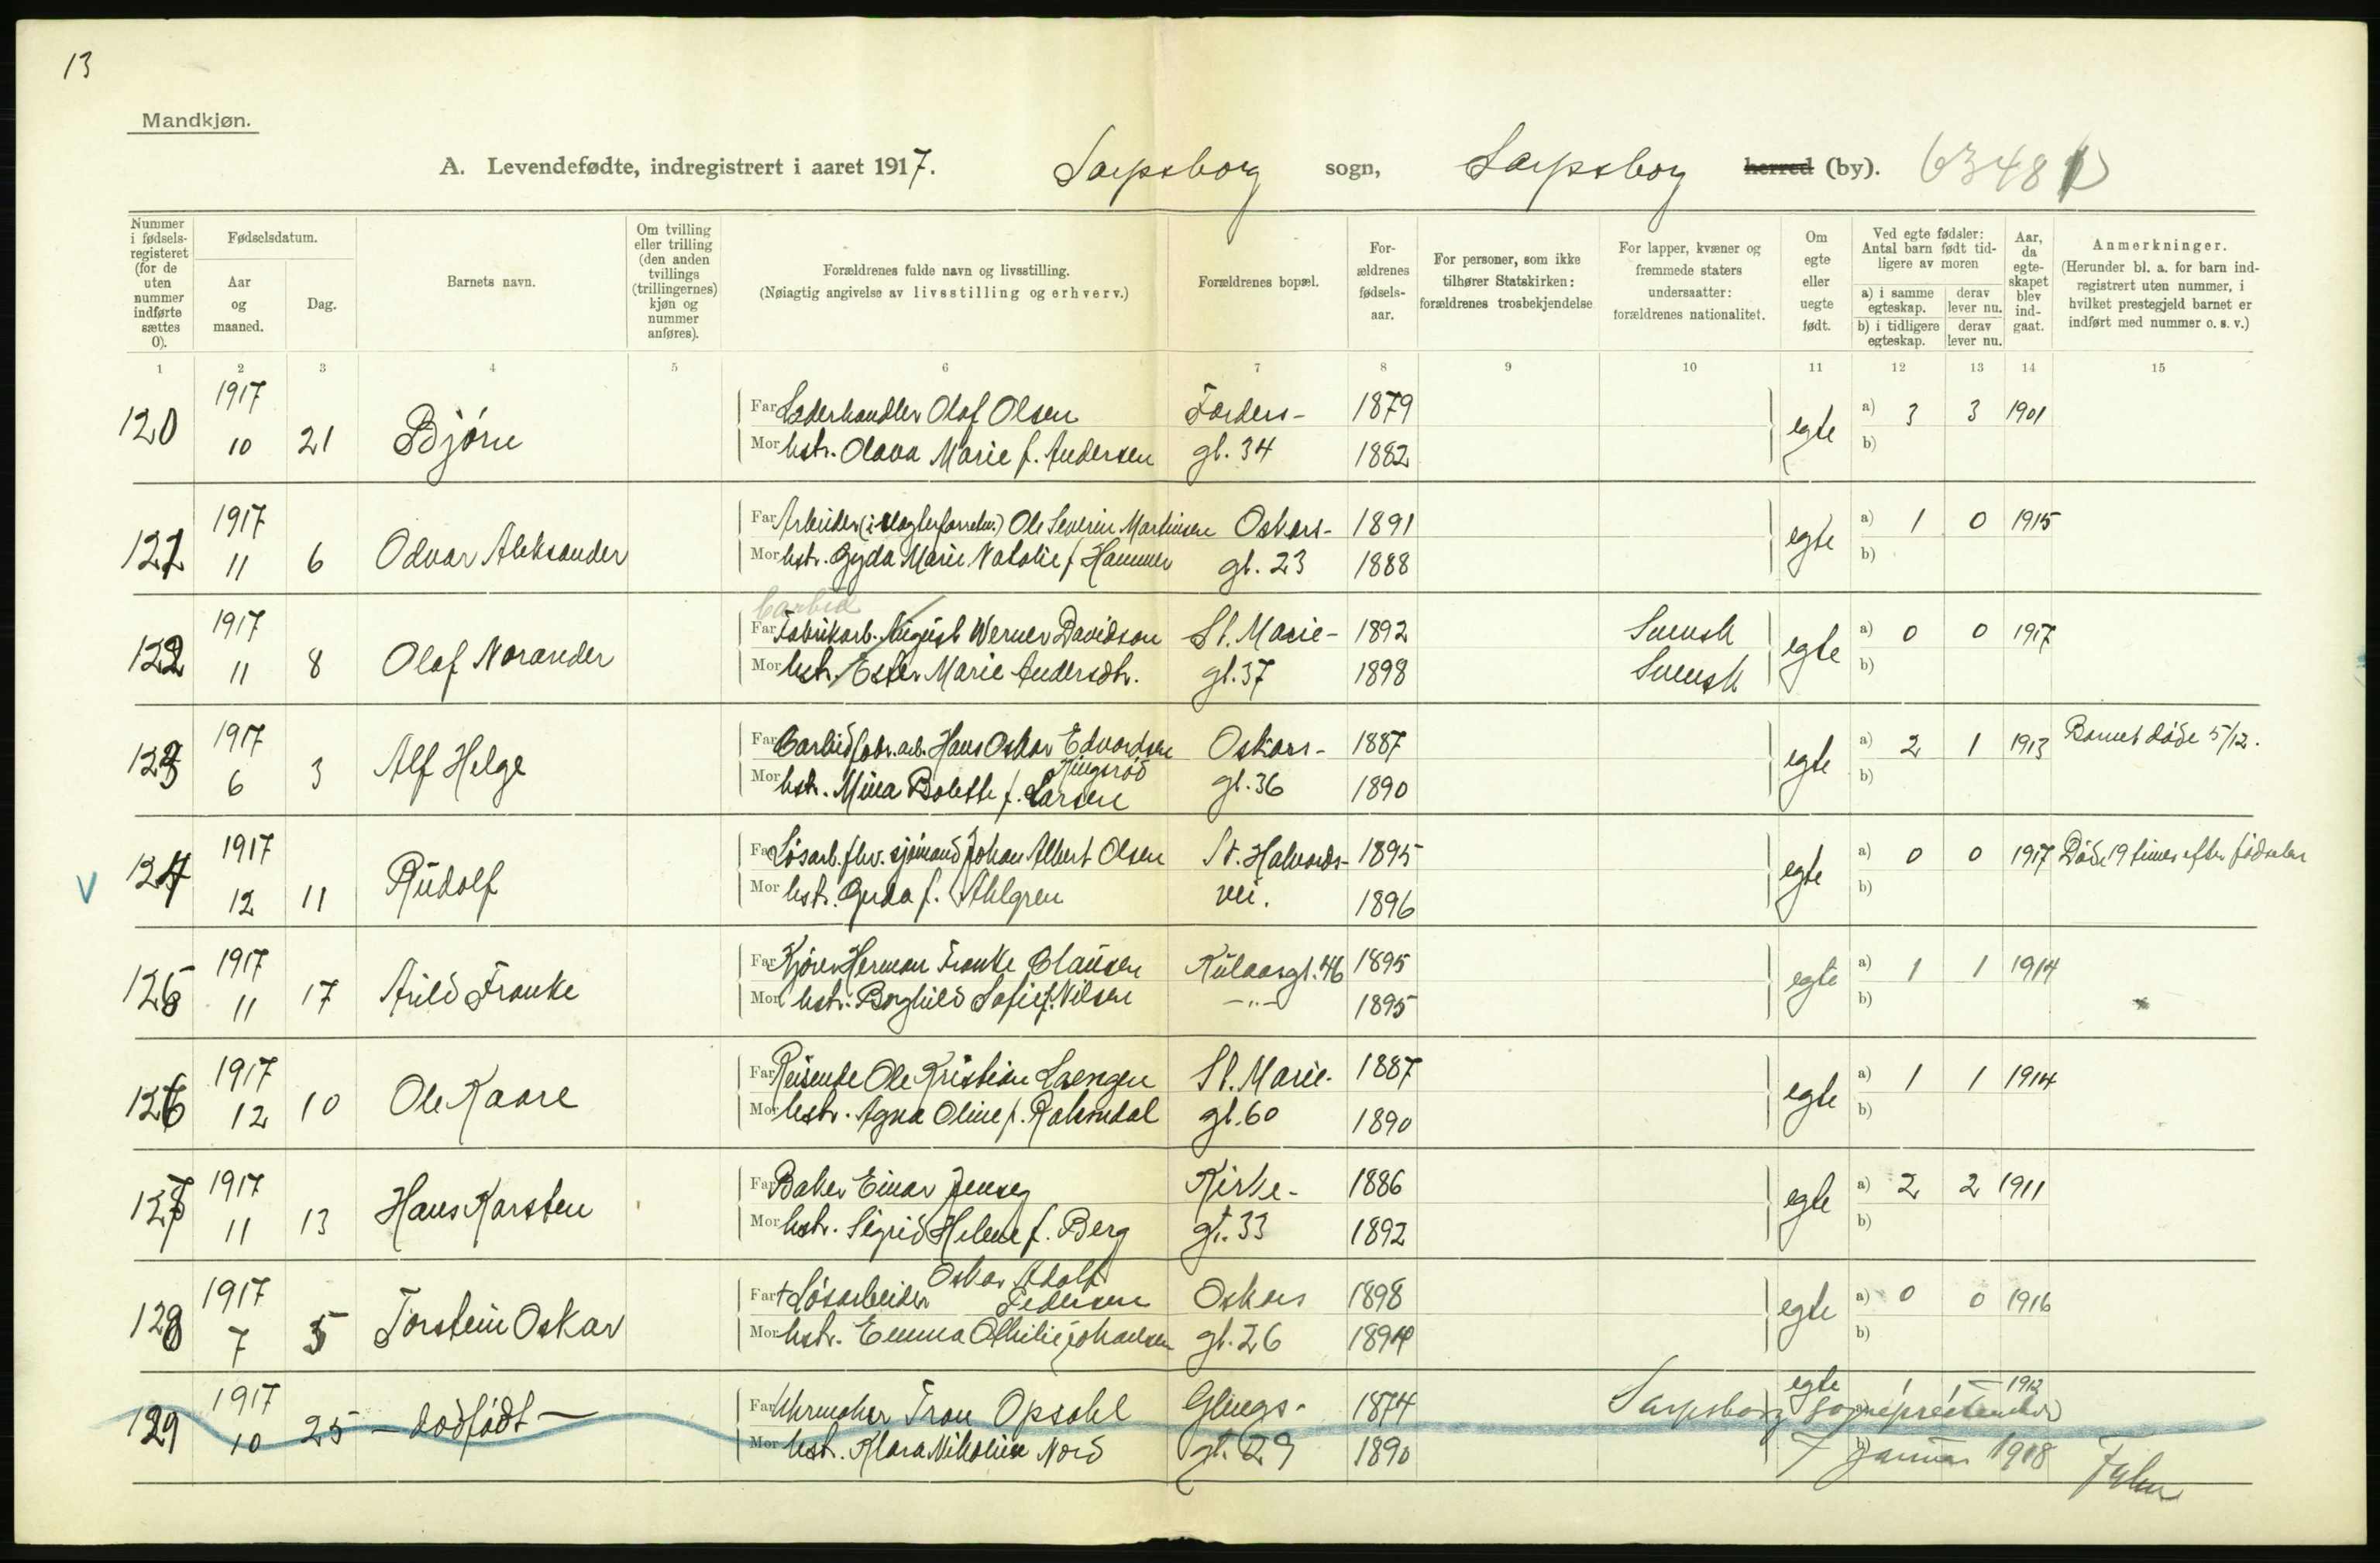 13
Mandkjøn.
A. Levendefødte, indregistrert i aaret 1917. Sarpsborg sogn, Sarpsborg herred (by). 6348
Nummer i fødsels-registeret (for de uten nummer indførte sættes 0).
Fødselsdatum.
Aar og maaned.
Dag.
Barnets navn.
Om tvilling eller trilling (den anden tvillings (trillingernes) kjøn og nummer anføres).
Forældrenes fulde navn og livsstilling.
(Nøiagtig angivelse av livsstilling og erhverv.)
Forældrenes bopæl.
For-ældrenes fødsels-aar.
For personer, som ikke tilhører Statskirken: forældrenes trosbekjendelse
For lapper, kvæner og fremmede staters undersaatter: forældrenes nationalitet.
Om egte eller uegte født.
Ved egte fødsler: Antal barn født tid-ligere av moren
a) i samme egteskap.
derav lever nu.
b) i tidligere egteskap.
derav lever nu.
Aar, da egte-skapet blev ind-gaat.
Anmerkninger.
(Herunder bl. a. for barn ind-registrert uten nummer, i hvilket prestegjeld barnet er indført med nummer o. s. v.)
1 2 3 4 5 6 7 8 9 10 11 12 13 14 15
1917
120 10 21 Bjørn
Far Læderhandler Olaf Olsen Fordens- 1879 egte a) 3 3 1901
Mor hstr. Olava Marie f. Andersen gt. 34 1882 b)
1917
121 11 6 Odvar Aleksander
Far Arbeider Ole Severin Martinsen Oskars- 1891 egte a) 1 0 1915
Mor hstr. Gyda Marie Natalie f. Hammer gt. 23 1888 b)
Carbid
1917
122 11 8 Olaf Norander
Far Fabrikarb. August Werner Davidson St. Marie- 1892 Svensk egte a) 0 0 1917
Mor hstr. Ester Marie Andersdtr. gt. 37 1898 Svensk b)
1917
123 6 3 Alf Helge
Far Carbidfabr.arb. Hans Oskar Edvardsen Oskars- 1887 egte a) 2 1 1913 Barnet døde 5/12.
Ringsrød
Mor hstr. Mina Bolette f. Larsen gt. 36 1890 b)
1917
V 124 12 11 Rudolf
Far Løsarb. fhv. sjømand Johan Albert Olsen St. Halvards- 1895 egte a) 0 0 1917 Døde 19 timer efter fødselen
Mor hstr. Gerda f. Ahlgren vei. 1896 b)
1917
125 11 17 Arild Franke
Far Kjører Herman Franke Clausen Kulaasgt. 46 1895 egte a) 1 1 1914
Mor hstr. Borghild Sofie f. Nilsen —„— 1895 b)
1917
126 12 10 Ole Kaare
Far Reisende Ole Kristian Laengen St. Marie- 1887 egte a) 1 1 1914
Mor hstr. Agna Oline f. Rakondal gt. 60 1890 b)
1917
127 11 13 Hans Karsten
Far Baker Einar Jenseg Kirke- 1886 egte a) 2 2 1911
Mor hstr. Sigrid Helene f. Berg gt. 33 1892 b)
Oskar Adolf
1917
128 7 5 Torstein Oskar
Far + Løsarbeider Pedersen Oskars 1898 egte a) 0 0 1916
Mor hstr. Emma Othilie Johansen gt. 26 1894 b)
1917
129 10 25 — dødfødt —
Far Uhrmaker Tron Opsahl Glengs- 1874 egte 1 1 1912
Mor hstr. Klara Nikoline Nord gt. 29 1890
Sarpsborg sogneprestembed
7 januar 1918